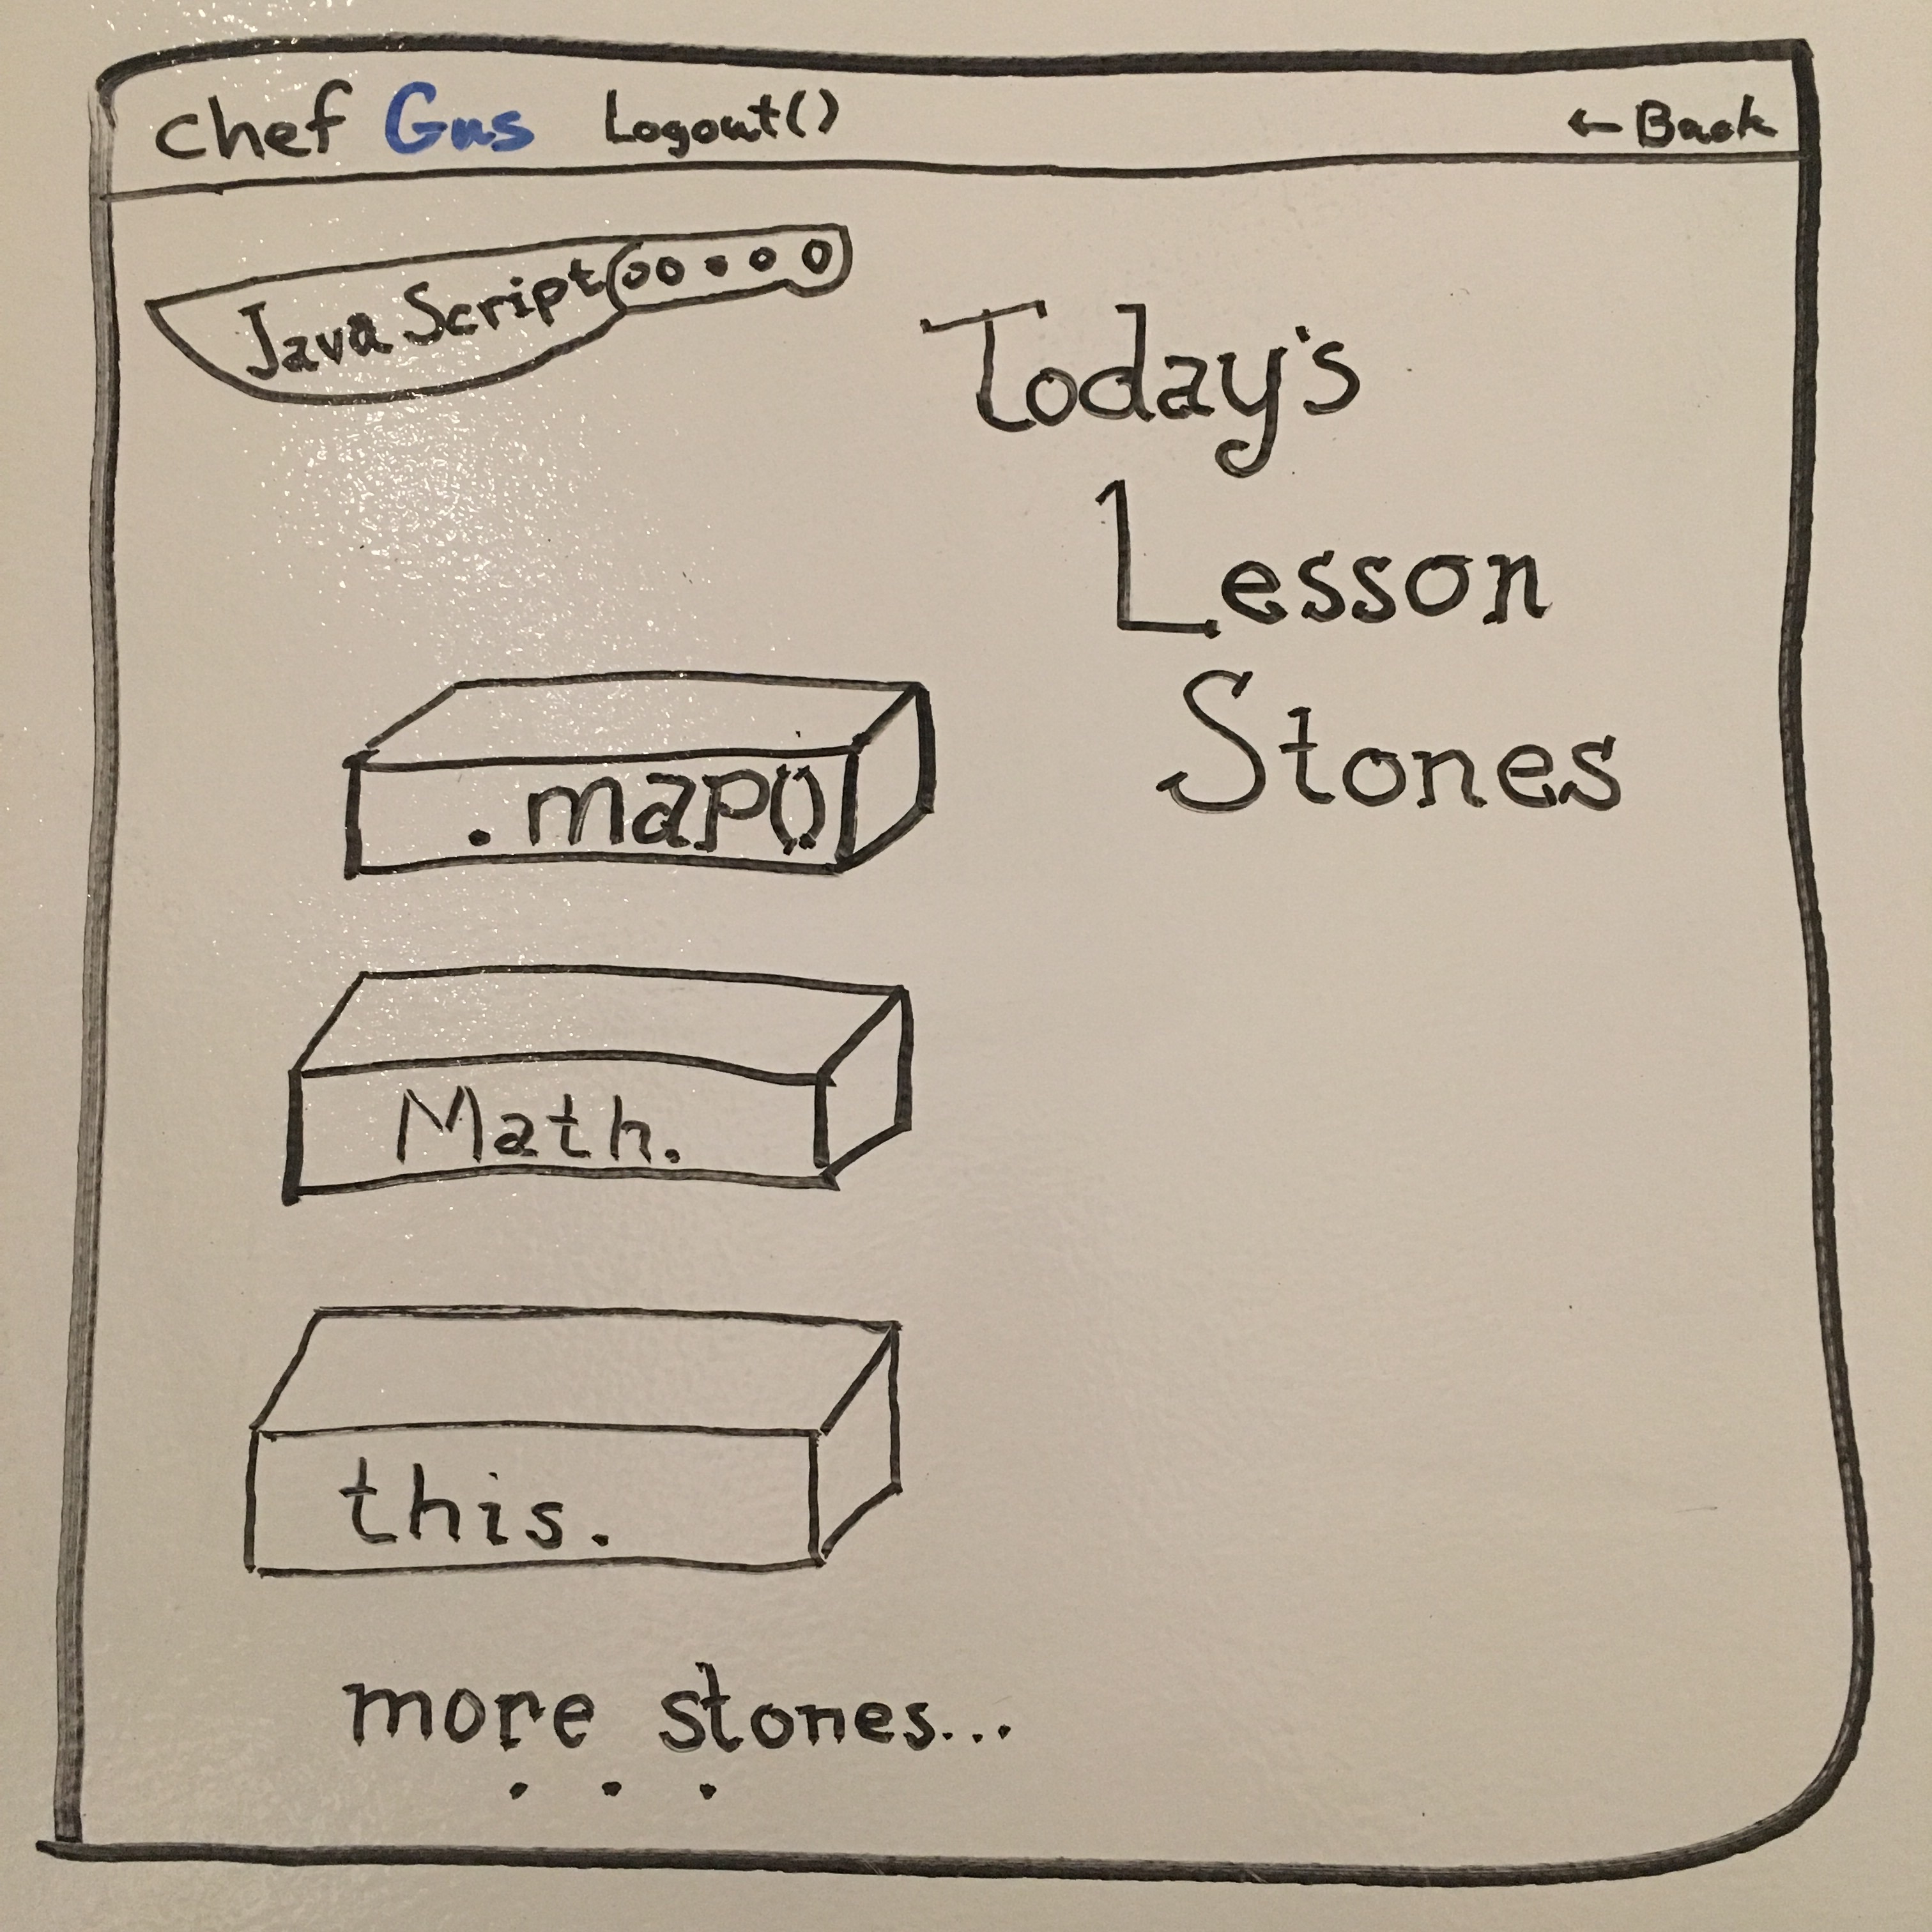 chef Gus Logout() ← Back
JavaScript
Today's
Lesson
Stones
.map()
Math.
this.
more stones...
...